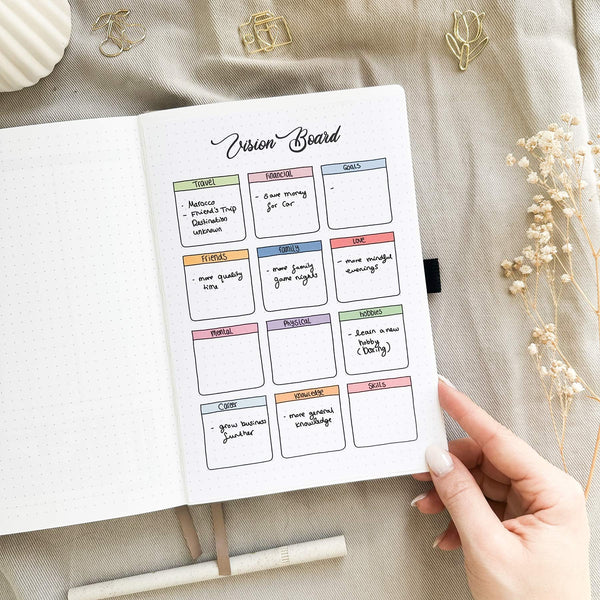 Vision Board
Travel
- Marocco
- Friend's Trip
Destination
unknown
Financial
- Save money
for car
Goals
-
Friends
- more quality
time
Family
- more family
game nights
Love
- more mindful
evenings
Mental
Physical
hobbies
- learn a new
hobby
(Boxing)
Career
- grow business
further
Knowledge
- more general
knowledge
Skills